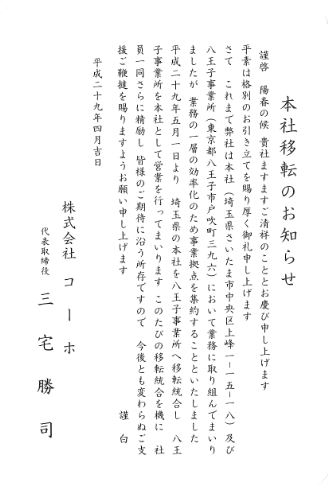 本社移転のお知らせ
謹啓　陽春の候 貴社ますますご清祥のこととお慶び申し上げます
平素は格別のお引き立てを賜り厚く御礼申し上げます
さて　これまで弊社は本社（埼玉県さいたま市中央区上峰一－一五－一八）及び
八王子事業所（東京都八王子市戸吹町三九六）において業務に取り組んでまいり
ましたが　業務の一層の効率化のため事業拠点を集約することといたしました
平成二十九年五月一日より　埼玉県の本社を八王子事業所へ移転統合し　八王
子事業所を本社として営業を行ってまいります このたびの移転統合を機に　社
員一同さらに精励し 皆様のご期待に沿う所存ですので　今後とも変わらぬご支
援ご鞭撻を賜りますようお願い申し上げます
謹　白
平成二十九年四月吉日
株式会社　コーホ
代表取締役　三宅勝司